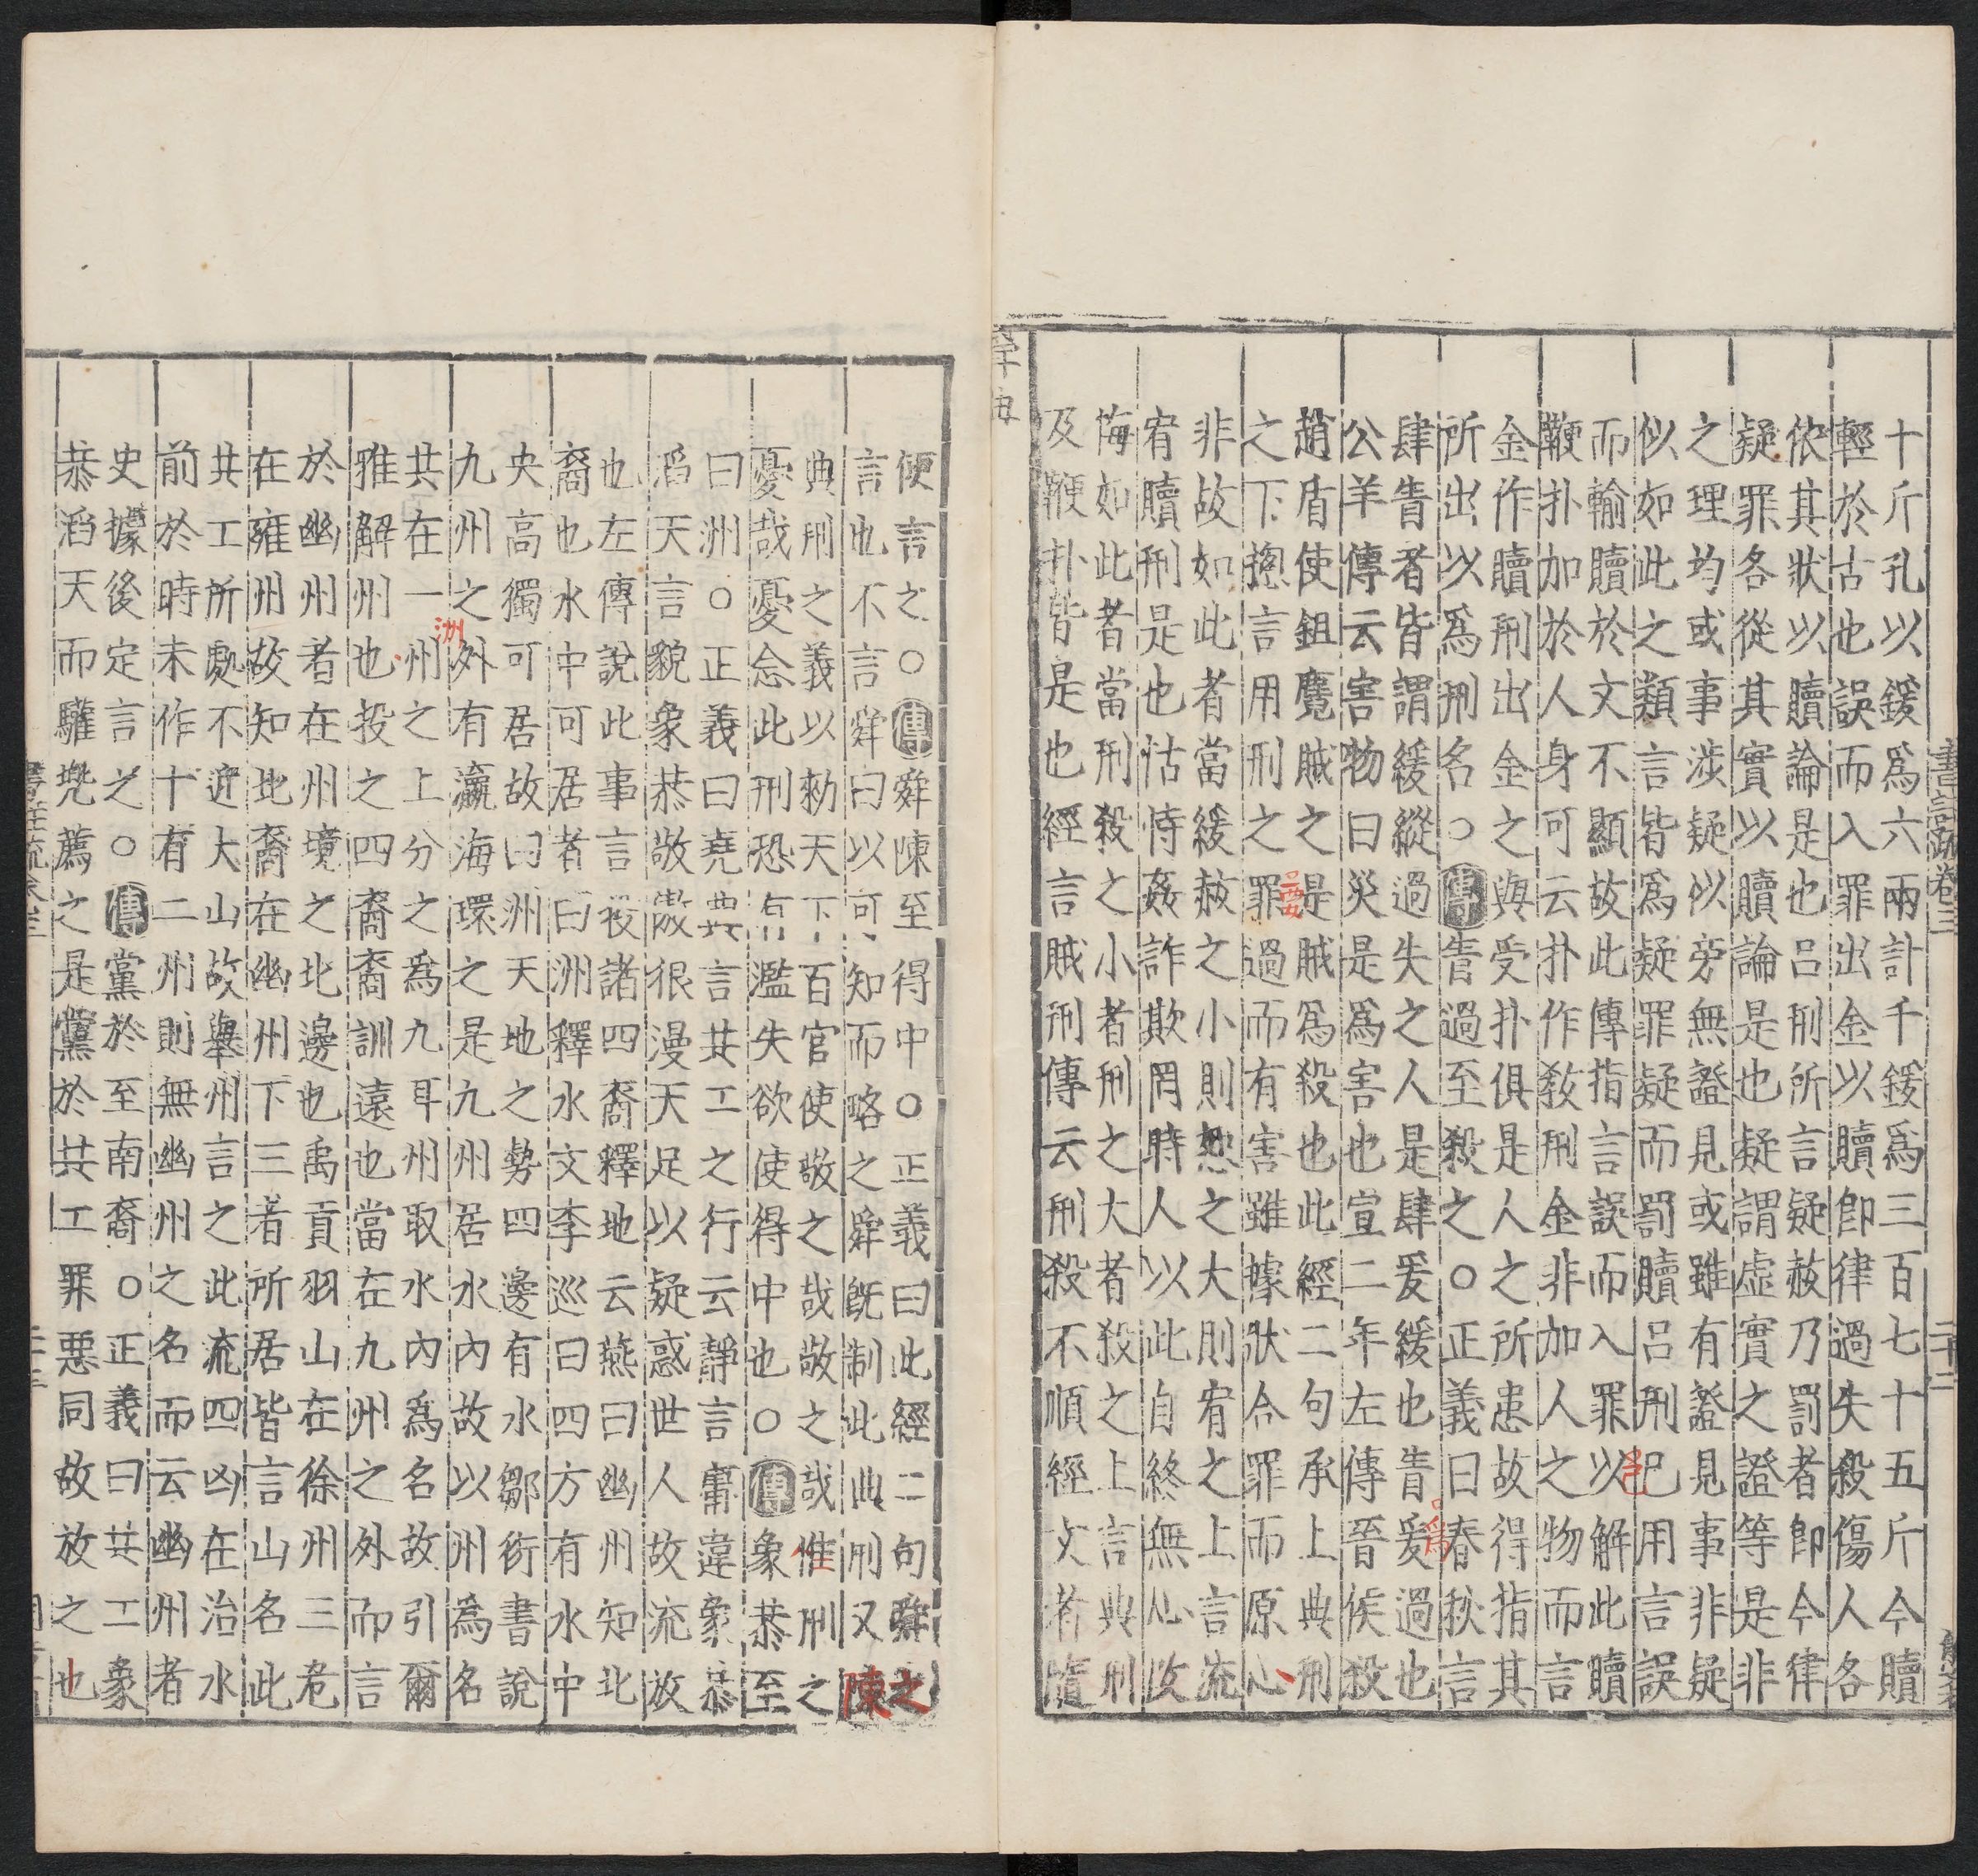 十斤孔以鍰爲六兩計千鍰爲三百七十五斤今贖
輕於古也誤而入罪出金以贖卽律過失殺傷人各
依其狀以贖論是也呂刑所言疑赦乃罰者卽今律
疑罪各從其實以贖論是也疑謂虛實之證等是非
之理均或事涉疑似旁無證見或雖有證見事非疑
似如此之類言皆爲疑罪疑而罰贖呂刑已用言誤
而輸贖於文不顯故此傳指言誤而入罪以解此贖
鞭扑加於人身可云扑作敎刑金非加人之物而言
金作贖刑出金之與受扑俱是人之所患故得指其
所出以爲刑名○傳眚過至殺之○正義曰春秋言
肆眚者皆謂緩縱過失之人是肆爰緩也眚爰過也
公羊傳云害物曰災是爲害也宣二年左傳晉侯殺
趙盾使鉏麑賊之是賊爲殺也此經二句承上典刑
之下摠言用刑之罪過而有害雖據狀合罪而原心
非故如此者當緩赦之小則恕之大則宥之上言流
宥贖刑是也怙恃姦詐欺罔時人以此自終無心改
悔如此者當刑殺之小者刑之大者殺之上言典刑
及鞭扑皆是也經言賊刑傳云刑殺不順經文者隨
便言之○傳舜陳至得中○正義曰此經二句舜之
言也不言舜曰以可知而略之舜旣制此典刑又陳
典刑之義以勑天下百官使敬之哉敬之哉惟刑之
憂哉憂念此刑恐有濫失欲使得中也○傳象恭至
曰洲○正義曰堯典言共工之行云靜言庸違象恭
滔天言貌象恭敬傲很漫天足以疑惑世人故流放
也左傳說此事言投諸四裔釋地云燕曰幽州知北
裔也水中可居者曰洲釋水文李巡曰四方有水中
央高獨可居故曰洲天地之勢四邊有水鄒衍書說
九州之外有瀛海環之是九州居水內故以州爲名
共在一州之上分之爲九耳州取水內爲名故引爾
雅解州也投之四裔裔訓遠也當在九州之外而言
於幽州者在州境之北邊也禹貢羽山在徐州三危
在雍州故知北裔在幽州下三者所居皆言山名此
共工所處不近大山故舉州言之此流四凶在治水
前於時未作十有二州則無幽州之名而云幽州者
史據後定言之○傳黨於至南裔○正義曰共工象
恭滔天而驩兜薦之是黨於共工罪惡同故放之也